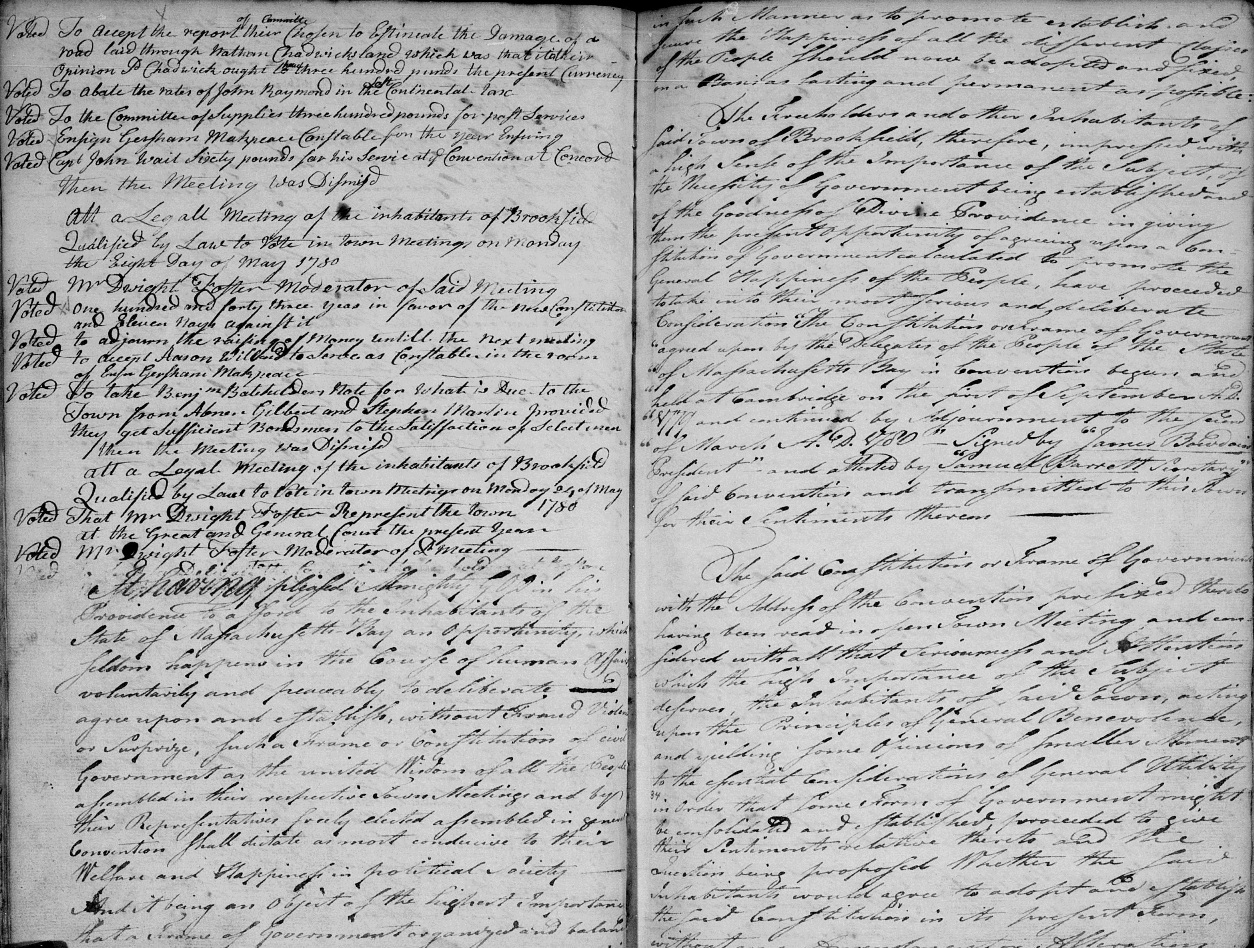 Voted To accept the report of their Committe Chosen to Estimate the Damage of a
road laid through Nathan Chadwicks land which was that it their
Opinion Sd Chadwick ought to have three hundred punds the present Currency
Voted To abate the rates of John Raymond in the last Continental Tax
Voted To the Committee of Supplies three hundred pounds for past Services
Voted Ensign Gersham Makpeace Constable for the year Ensuing
Voted Capt John Wait Sixty pounds for his Service at ye Convention at Concord
Then the Meeting was Dismisd
Att a Legall Meeting of the inhabitants of Brookfield
Qualified by Law to Vote in Town Meetings on Monday
the Eight Day of May 1780
Voted Mr Dwight Foster Moderator of said Meeting
Voted One hundred and forty three yeas in favor of the New Constitution
and Eleven Nays against it
Voted to adjourn the raising of Money untill the Next meeting
Voted to accept Aason to Serve as Constable in the room
of Ensn Gersham Makpeace
Voted To take Benjm Batchelders Note for what is Due to the
Town from Abner Gilbert and Stephen Martin provided
they get Sufficient Bondsmen to the Satisfaction of Selectmen
Then the Meeting was Dismisd
att a Legal Meeting of the inhabitants of Brookfield
Qualified by Law to Vote in Town Meetings on Monday 24 of May
1780
Voted That Mr Dwight Foster Represent the town
at the Great and General Court the present Year
Voted Mr Dwight Foster Moderator of Sd Meeting
It having pleased Almighty GOD in his
Providence to afford to the Inhabitants of the
State of Massachusetts Bay an Opportunity, which
seldom happens in the Course of human Affairs
voluntarily and peaceably to deliberate
agree upon and establish, without Fraud Violence
or Surprize, such a Frame or Constitution of civil
Government as the united Wisdom of all the People
assembled in their respective Town Meetings and by
their Representatives freely elected assembled in general
Convention shall dictate as most conducive to their
Welfare and Happiness in political Society
And it being an Object of the highest Importance
that a Frame of Government organized and
in such Manner as to promote establish and
secure the Happiness of all the different Classes
of the People should now be adopted and fixed,
on a Basis as lasting and permanent as possible:
The Freeholders and other Inhabitants of
said Town of Brookfield, therefore, impressed with
a high Sense of the Importance of the Subject, of
the Necessity of Government being established and
of the Goodness of Divine Providence in giving
them the present Opportunity of agreeing upon a Con-
stitution of Government calculated to promote the
General Happiness of the People, have proceeded
to take into their most serious and deliberate
Consideration "The Constitution or frame of Government
"agreed upon by the Delegates of the People of the State
"of Massachusetts Bay in Convention begun and
held at Cambridge on the first of September A.D.
and continued by Adjournment to the second
of March A.D. 1780" Signed by "James Bowdoin
President" and attested by "Samuel Barrett Secretary"
of said Convention and transmitted to this Town
for their Sentiments thereon
The said Constitution or Frame of Government
with the Address of the Convention prefixed thereto
having been read in open Town Meeting and con-
sidered with all that Seriousness and Attention
which the high Importance of the Subject
deserves, the Inhabitants of said Town, acting
upon the Principles of General Benevolence,
and yielding some Opinions of smaller Moment
to the essential Considerations of General Utility
in Order that some Form of Government might
be consolidated and established proceeded to give
their Sentiments relative thereto and the
Question being proposed Whether the said
Inhabitants would agree to adopt and establish
the said Constitution in its present Form,
without any